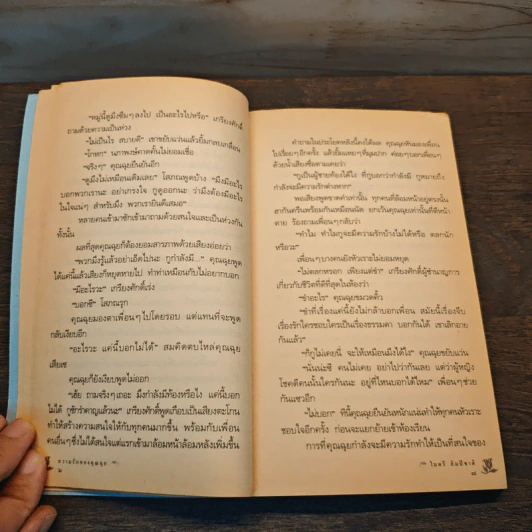 "หมู่นี้ดูมึงซึมๆ ลงไป เป็นอะไรไปหรือ" เกรียงศักดิ์
ถามด้วยความเป็นห่วง
"ไม่เป็นไร สบายดี" เขาขยับแว่นแล้วยิ้มกลบเกลื่อน
"โกหก" นภาพงษ์คาดคั้นไม่ยอมเชื่อ
"จริงๆ" คุณฉุยยืนยันอีก
"ดูมึงไม่เหมือนเดิมเลย" โสภณพูดบ้าง "มึงมีอะไร
บอกพวกเรานะ อย่าเกรงใจ กูดูออกนะ ว่ามึงต้องมีอะไร
ในใจแน่ๆ สำหรับมึง พวกเรายินดีเสมอ"
หลายคนเข้ามาซักเข้ามาถามด้วยสนใจและเป็นห่วงกัน
ทั้งนั้น
ผลที่สุดคุณฉุยก็ต้องยอมสารภาพด้วยเสียงอ่อยว่า
"พวกมึงรู้แล้วอย่าเอ็ดไปนะ กูกำลังมี..." คุณฉุยพูด
ได้แค่นี้แล้วเสียงก็หยุดหายไป ทำท่าเหมือนกับไม่อยากบอก
"มีอะไรวะ" เกรียงศักดิ์เร่ง
"บอกซี" โสภณรุก
คุณฉุยมองตาเพื่อนๆ ไปโดยรอบ แต่แทนที่จะพูด
กลับเงียบอีก
"อะไรวะ แค่นี้บอกไม่ได้" สมคิดตบไหล่คุณฉุย
เสียเช
คุณฉุยก็ยังเงียบพูดไม่ออก
"เฮ้ย ถามจริงๆ เถอะ มึงกำลังมีท้องหรือไง แค่นี้บอก
ไม่ได้ กูชักรำคาญแล้วนะ" เกรียงศักดิ์พูดเกือบเป็นเสียงตะโกน
ทำให้สร้างความสนใจให้กับทุกคนมากขึ้น พร้อมกับเพื่อน
คนอื่นๆ ซึ่งไม่ได้สนใจแต่แรกเข้ามาล้อมหน้าล้อมหลังเพิ่มขึ้น
ความรักของคุณฉุย
คำถามในประโยคหลังนี้คงได้ผล คุณฉุยหันมองเพื่อน
ไปเรื่อยๆ อีกครั้ง แล้วยิ้มแหยๆ ที่มุมปาก ค่อยๆ บอกเพื่อนๆ
ด้วยน้ำเสียงซื่อตามเคยว่า
"กูเป็นผู้ชายท้องได้ไง ที่กูบอกว่ากำลังมี กูหมายถึง
กำลังจะมีความรักต่างหาก"
พอเสียงพูดขาดคำเท่านั้น ทุกคนที่ล้อมหน้าอยู่ตรงนั้น
ฮากันครืนพร้อมกันเหมือนนัด ยกเว้นคุณฉุยเท่านั้นที่ตีหน้า
ตาย ร้องถามเพื่อนๆ กลับว่า
"ทำไม ทำไมกูจะมีความรักบ้างไม่ได้หรือ ตลกนัก
หรือวะ"
เพื่อนๆ บางคนยังหัวเราะไม่ยอมหยุด
"ไม่ตลกหรอก เพียงแต่ขำ" เกรียงศักดิ์ผู้ชำนาญการ
เกี่ยวกับชีวิตที่ดีที่สุดในห้องว่า
"ขำอะไร" คุณฉุยขมวดคิ้ว
"ขำที่เรื่องแค่นี้ยังไม่กล้าบอกเพื่อน สมัยนี้เรื่องจีบ
เรื่องรักใครชอบใครเป็นเรื่องธรรมดา บอกกันได้ เขาเลิกอาย
กันแล้ว"
"ก็กูไม่เคยนี่ จะให้เหมือนมึงได้ไง" คุณฉุยขยับแว่น
"นั่นน่ะซี คนไม่เคย อย่าไปว่ากันเลย แต่ว่าผู้หญิง
โชคดีคนนั้นใครกันนะ อยู่ที่ไหนบอกได้ไหม" เพื่อนๆ ช่วย
กันแซวอีก
"ไม่บอก" ทีนี้คุณฉุยยืนยันหนักแน่นทำให้ทุกคนหัวเราะ
ชอบใจอีกครั้ง ก่อนจะแยกย้ายเข้าห้องเรียน
การที่คุณฉุยกำลังจะมีความรักทำให้เป็นที่สนใจของ
ไมตรี ลิมปิชาติ